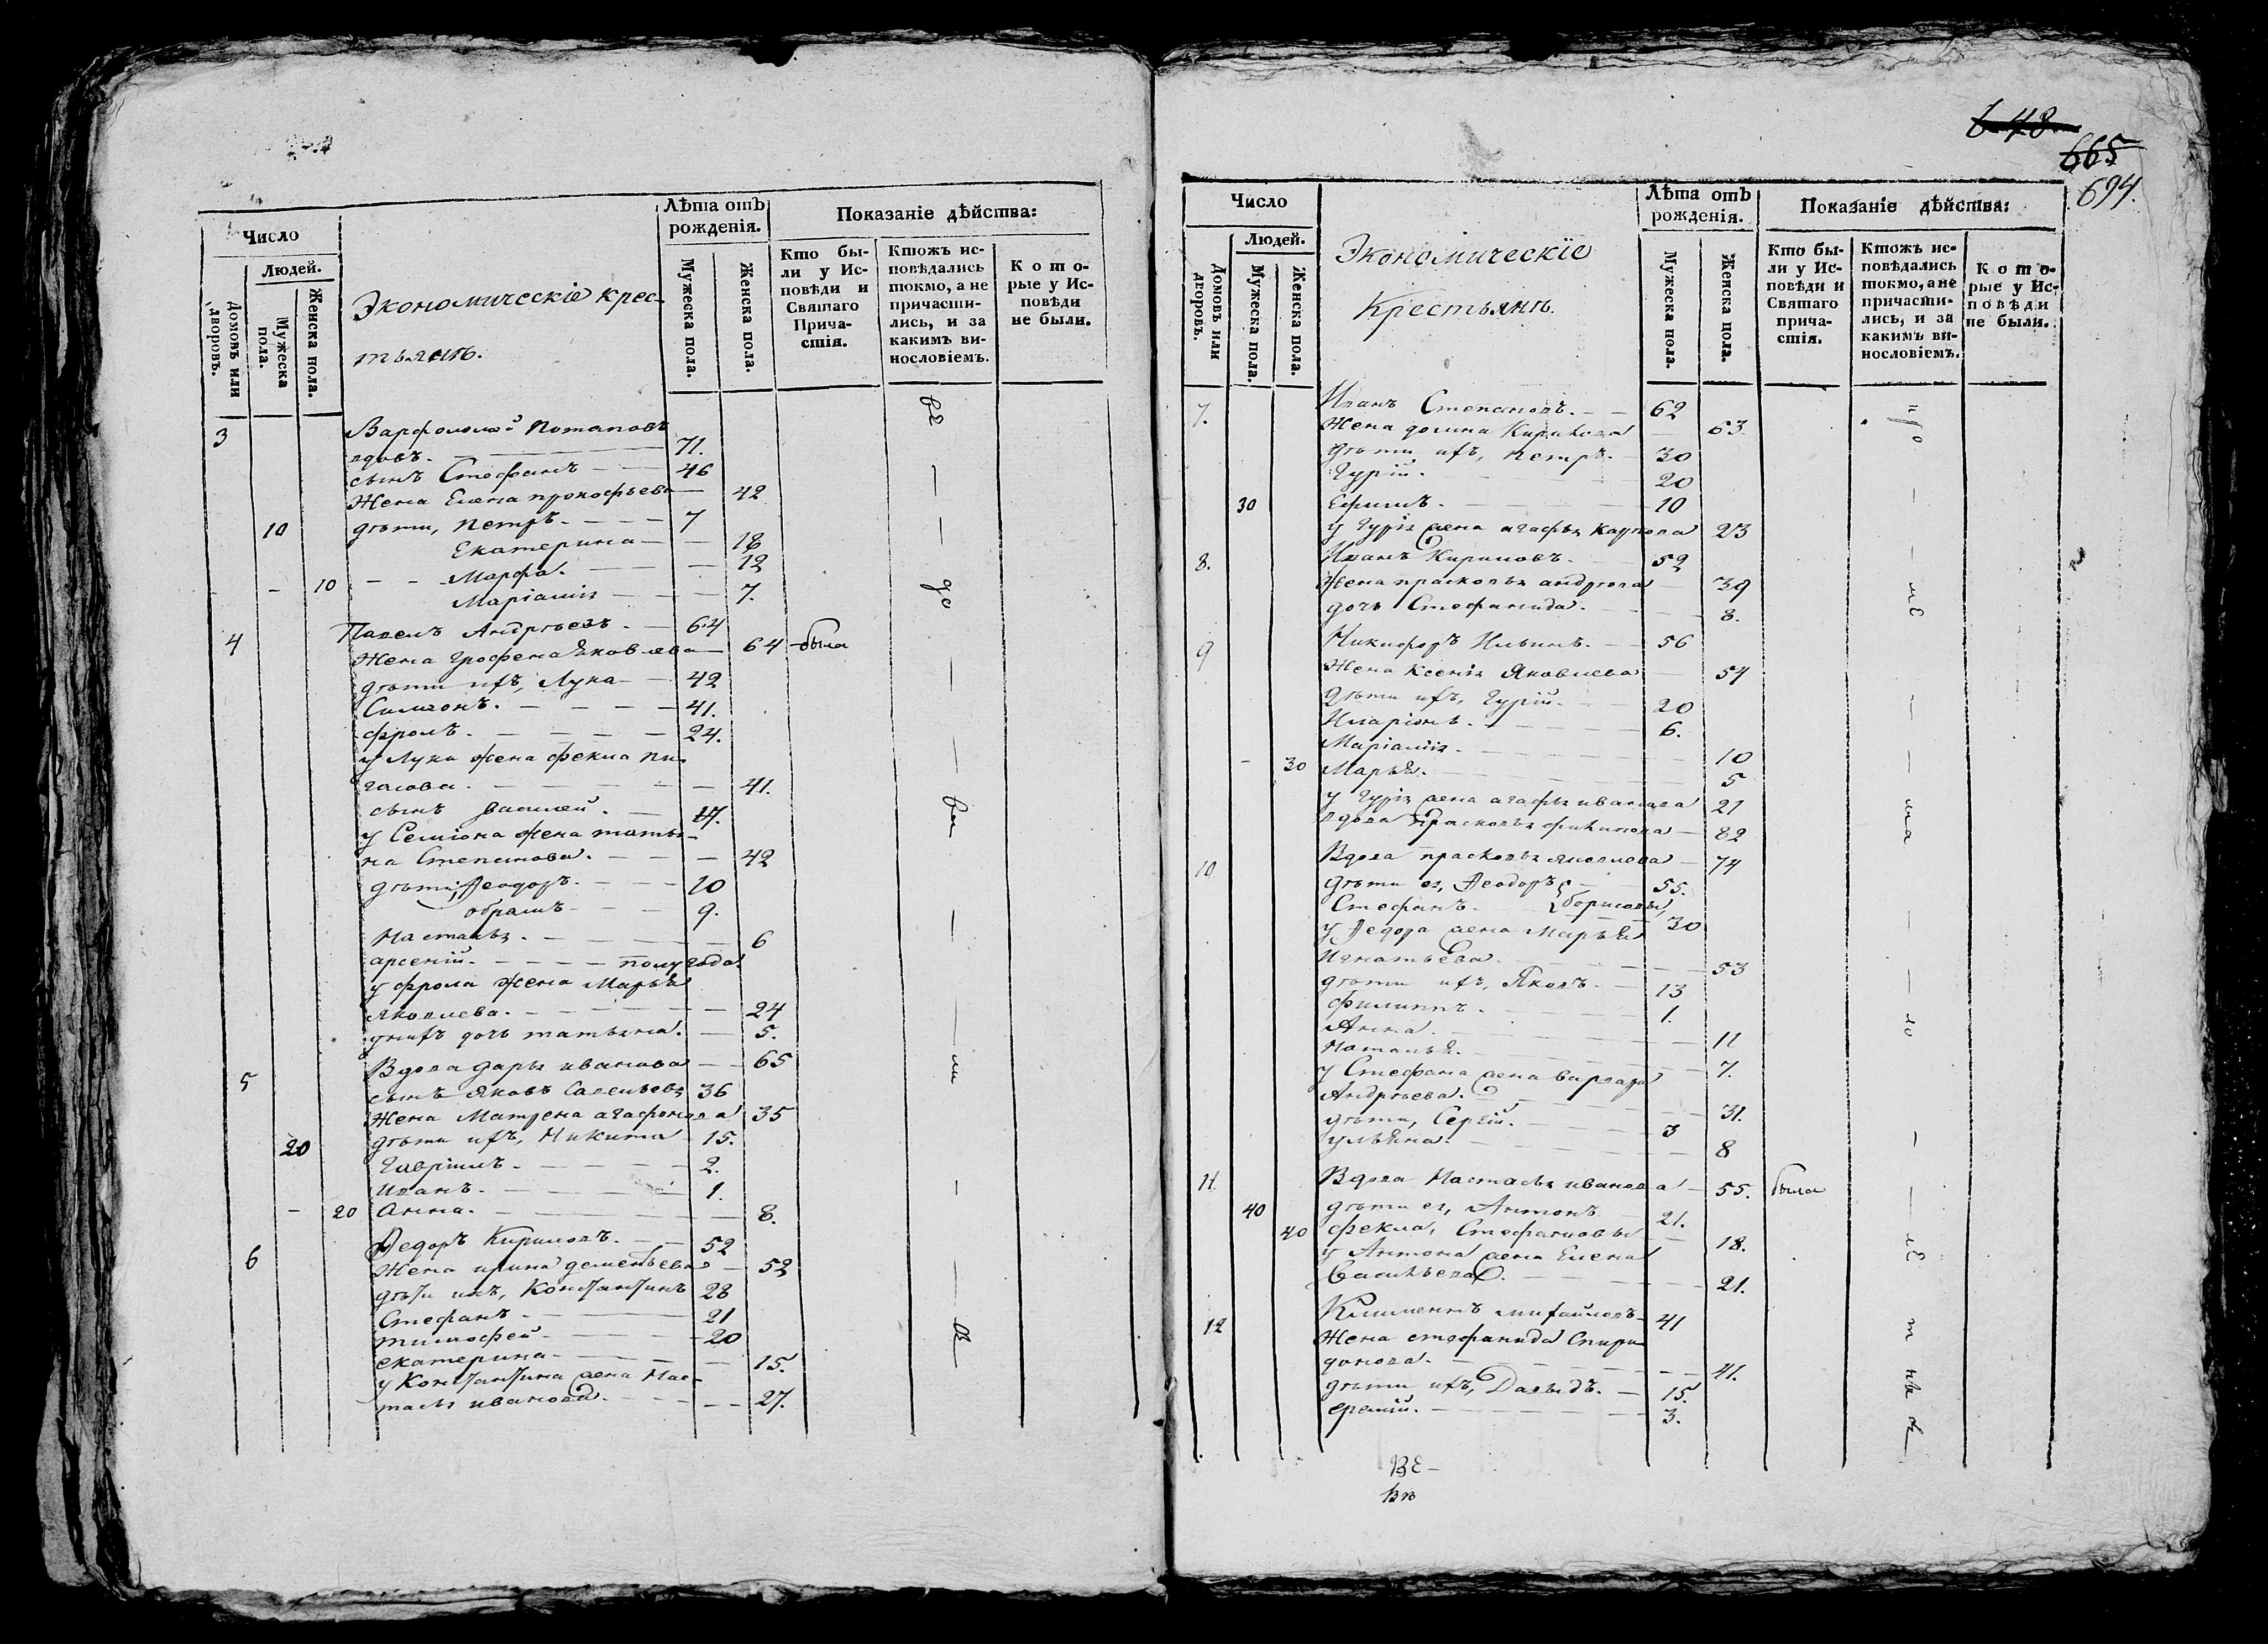 Число
Людей.
Домовъ или дворовъ.
Мужеска пола.
Женска пола.
Экономическіе крес
тьянъ.
Лѣта отъ рожденія.
Мужеска пола.
Женска пола.
Показаніе дѣйства:
Кто бы-
ли у Ис-
повѣди и
Святаго
Прича-
стія.
Ктожъ ис-
повѣдались
токмо, а не
причасти-
лись, и за
какимъ ви-
нословіемъ.
Кото-
рые у Ис-
повѣди
не были.
3 Варфоломей Потаповъ
вдовъ. 71.
сынъ Стефанъ 46
Жена Елена прокофьева 42
10 дѣти, Петръ. 7
Екатерина 18
Марфа. 12
10 Маріамія 7.
4 Павелъ Андрѣевъ. 64
Жена Грофена Яковлева 64 была
дѣти ихъ, Лука 42
Симеонъ. 41.
фролъ. 24.
у Луки жена фекла
41.
сынъ Василей. 17.
у Семіона жена татья-
на Степанова. 42
дѣти, Ѳеодоръ. 10
обрамъ 9.
Настасья. 6
арсеній. полугода.
у фрола жена Марья
яковлева. 24
у нихъ дочь татьяна. 5.
5 Вдова дарья иванова 65
сынъ Яковъ Савельевъ 36
Жена Матрена агафонова 35
20 дѣти ихъ, Никита 15.
Гавріилъ. 2.
Иванъ. 1.
20 Анна. 8.
6 Ѳедоръ Кириловъ. 52
Жена ирина дементьева 52
дѣти ихъ, Константинъ 28
Стефанъ 21
тимофей 20
екатерина 15.
у Константина жена Нас-
тасья иванова. 27.
648
665
694.
Число
Людей.
Домовъ или дворовъ.
Мужеска пола.
Женска пола.
Экономическіе
Крестьянъ.
Лѣта отъ рожденія.
Мужеска пола.
Женска пола.
Показаніе дѣйства:
Кто бы-
ли у Ис-
повѣди и
Святаго
прича-
стія.
Ктожъ ис-
повѣдались
токмо, а не
причасти-
лись, и за
какимъ ви-
нословіемъ.
Кото-
рые у Ис-
повѣди
не были.
7. Иванъ Степановъ. 62
Жена домна Кирилова 63.
дѣти ихъ, петръ. 30
Гурій. 20
30 Ефимъ. 10
у Гурія жена агафья 23
8. Иванъ Кириловъ. 52
Жена прасковья андреева 39
дочь Стефанида. 8.
9 Никифоръ Ильинъ. 56
Жена Ксенія Яковлева 54
дѣти ихъ, Гурій. 20
Иларіонъ. 6.
Маріамія. 10
30 Марья. 5
у Гурія жена агафья иванова 21
вдова Прасковья 82
10 Вдова прасковья яковлева 74
дѣти ея, Ѳеодоръ 55.
Стефанъ. борисовы, 30
у Ѳедора жена Марья
Игнатьева. 53
дѣти ихъ, Яковъ. 13
филиппъ. 1.
Анна. 11
Наталья. 7.
у Стефана жена варвара
Андрѣева. 31.
дѣти, Сергій. 3
ульяна. 8
11. Вдова Настасья иванова 55. была
40 дѣти ея, Антонъ 21.
40 фекла, Стефановы 18.
у Антона жена Елена
Васильева. 21.
12 Климентъ михайловъ 41
Жена стефанида Спири-
донова. 41.
дѣти ихъ, Давыдъ. 15.
еремій. 3.